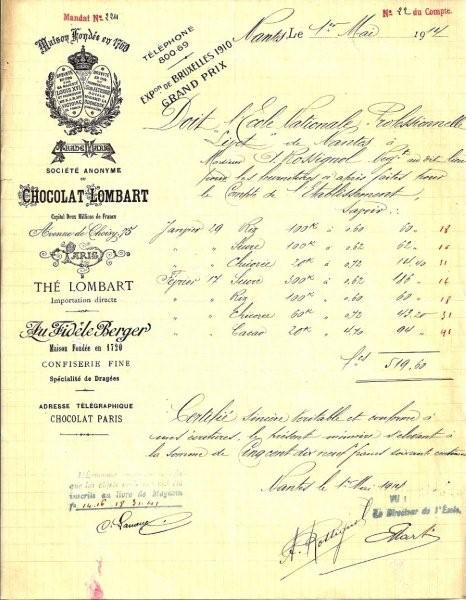 Mandat No 224
No 22 du Compte.
Maison Fondée en 1760
TÉLÉPHONE
800-69
EXPon DE BRUXELLES 1910
GRAND PRIX
Nantes, Le 1er Mai 1914
LOUIS XVI
TRADE MARK
SOCIÉTÉ ANONYME
DU
CHOCOLAT LOMBART
Capital Deux Millions de Francs
Avenue de Choisy, 75
PARIS
THÉ LOMBART
Importation directe
Au Fidèle Berger
Maison Fondée en 1720
CONFISERIE FINE
Spécialité de Dragées
ADRESSE TÉLÉGRAPHIQUE
CHOCOLAT PARIS
Doit l'Ecole Nationale Professionnelle
Livet de Nantes à
Monsieur A. Rossignol au dit lieu
pour les fournitures ci après faites pour
le Compte de l'Etablissement,
Savoir :
Janvier 29 Riz 100K à 0.60 60 " 18
" " Sucre 100K " 0.62 62 " 16
" " Chicorée 20K à 0.72 14.40 31
Février 17 Sucre 300K à 116 " 16
" " Riz 100K à 0.60 60 " 18
" " Chicorée 60K " 0.72 43.20 31
" " Cacao 20K " 4.70 94 " 41
519.60
Certifié sincère véritable et conforme à
mes écritures, le présent mémoire s'élevant à
la somme de Cinq cent dix neuf francs soixante centimes
Nantes le 1er Mai 1914
que les objets
inscrits au livre de Magasin
Fo 14.16 18 31.41
VU :
Le Directeur de l'École,
A. Rossignol